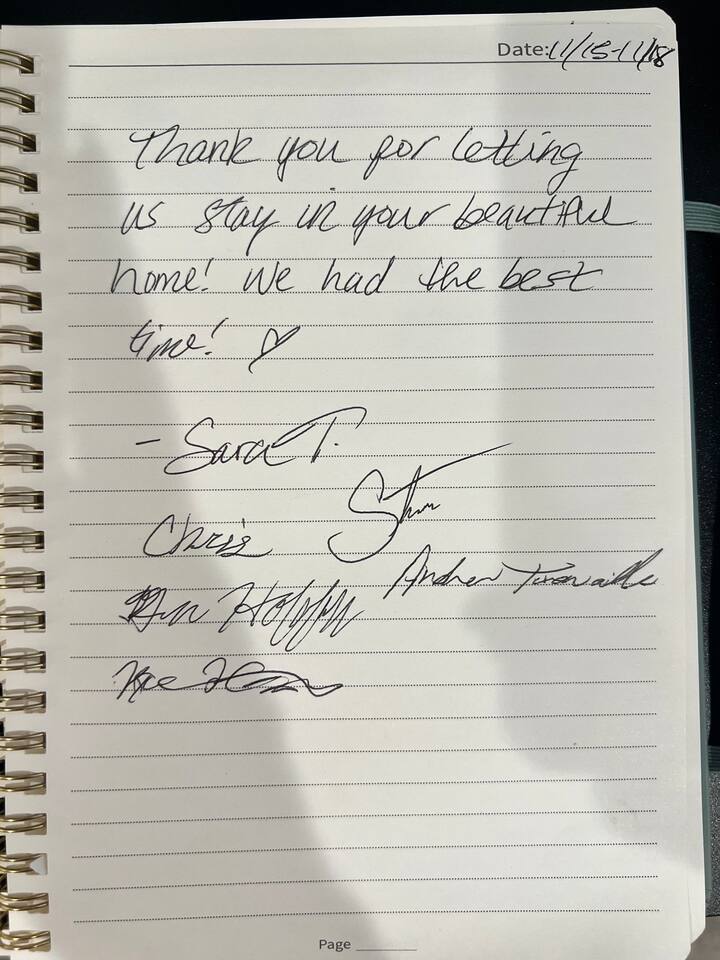 Date: 11/15-11/18
Thank you for letting
us stay in your beautiful
home! We had the best
time! ♡
- Sara T.
Chris
Andrew
Page